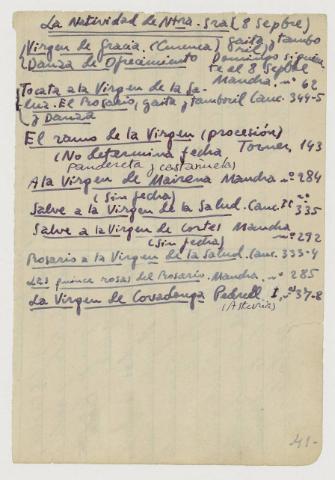 La Natividad de Ntra. Sra (8 Sepbre)
Virgen de Gracia. (Cuenca) gaita y tambo
ril)
Danza de Ofrecimiento Domingo siguien
te al 8 Sepbre
Mancha. nº 62
Tocata a la Virgen de la Sa-
lud. El Rosario, gaita y tamboril Canc. 344-5
y Danza
El ramo de la Virgen (procesión)
(No determina fecha Torner, 143
Pandereta y castañuelas)
A la Virgen de Mairena Mancha nº 284
(Sin fecha)
Salve a la Virgen de la Salud. Canc. II nº
335
Salve a la Virgen de Cortes Mancha
(Sin fecha) nº 292
Rosario a la Virgen de la Salud. Canc. 333-4
Las quince rosas del Rosario. Mancha. nº 285
La Virgen de Covadonga Pedrell I, nº 37-8
(Asturias)
41-